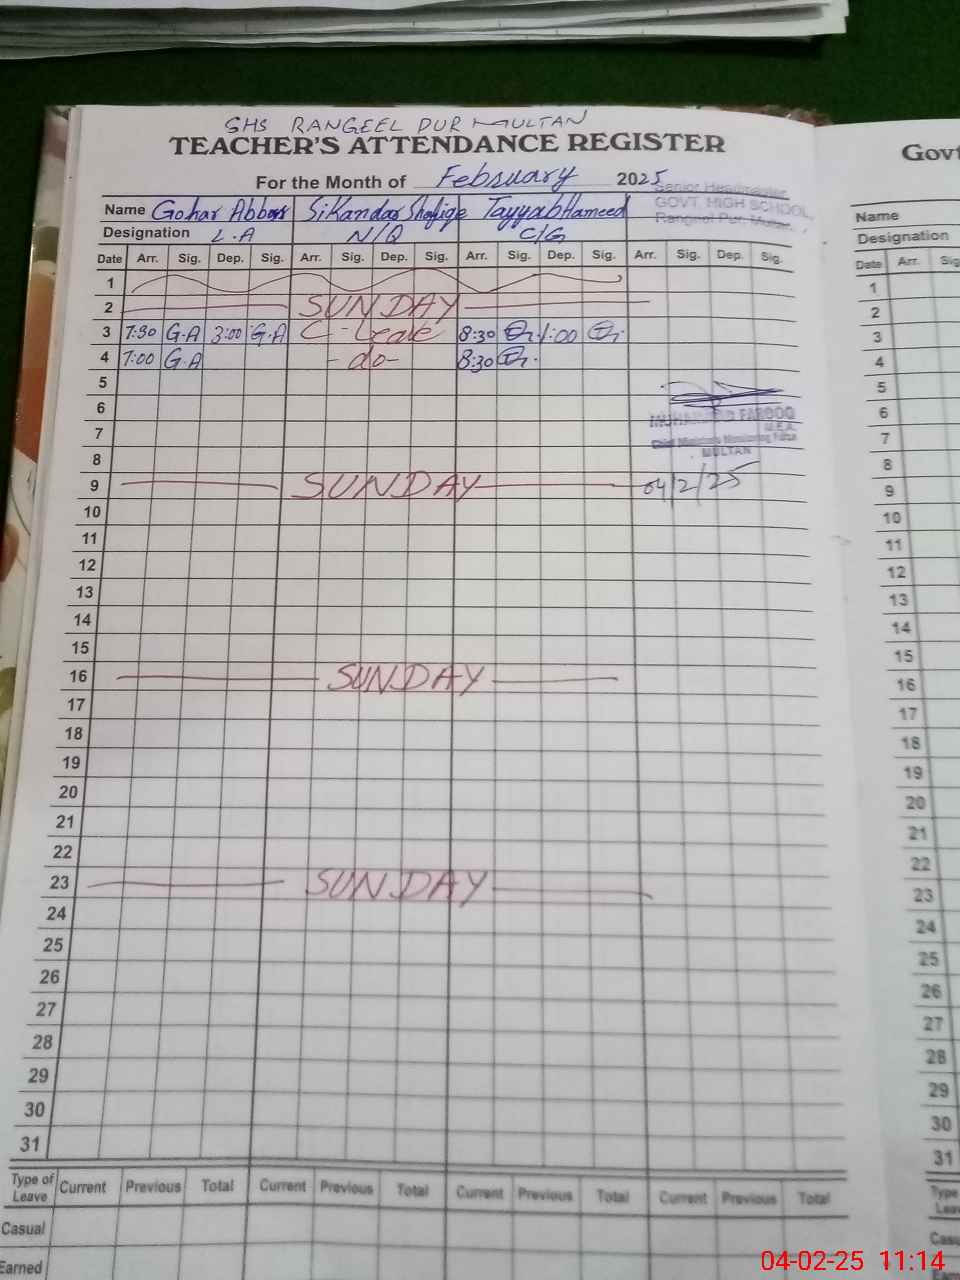 GHS RANGEEL PUR MULTAN
TEACHER'S ATTENDANCE REGISTER
For the Month of February 2025
Senior Headmaster
GOVT. HIGH SCHOOL,
Rangeel Pur, Multan.
Name Gohar Abbas Sikandar Shafique Tayyab Hameed
Designation L.A N/Q C/G
Date Arr. Sig. Dep. Sig. Arr. Sig. Dep. Sig. Arr. Sig. Dep. Sig. Arr. Sig. Dep. Sig.
1
2 SUNDAY
3 7:30 G.A 3:00 G.A C-Leave 8:30 1:00
4 7:00 G.A -do- 8:30
5
6
7
8
MUHAMMAD FAROOQ
M.E.A.
Chief Minister's Monitoring Force
MULTAN
9 SUNDAY 04/2/25
10
11
12
13
14
15
16 SUNDAY
17
18
19
20
21
22
23 SUNDAY
24
25
26
27
28
29
30
31
Type of Leave Current Previous Total Current Previous Total Current Previous Total Current Previous Total
Casual
Earned
Govt
Name
Designation
Date Arr. Sig
1
2
3
4
5
6
7
8
9
10
11
12
13
14
15
16
17
18
19
20
21
22
23
24
25
26
27
28
29
30
31
Type
Leav
Casu
04-02-25 11:14